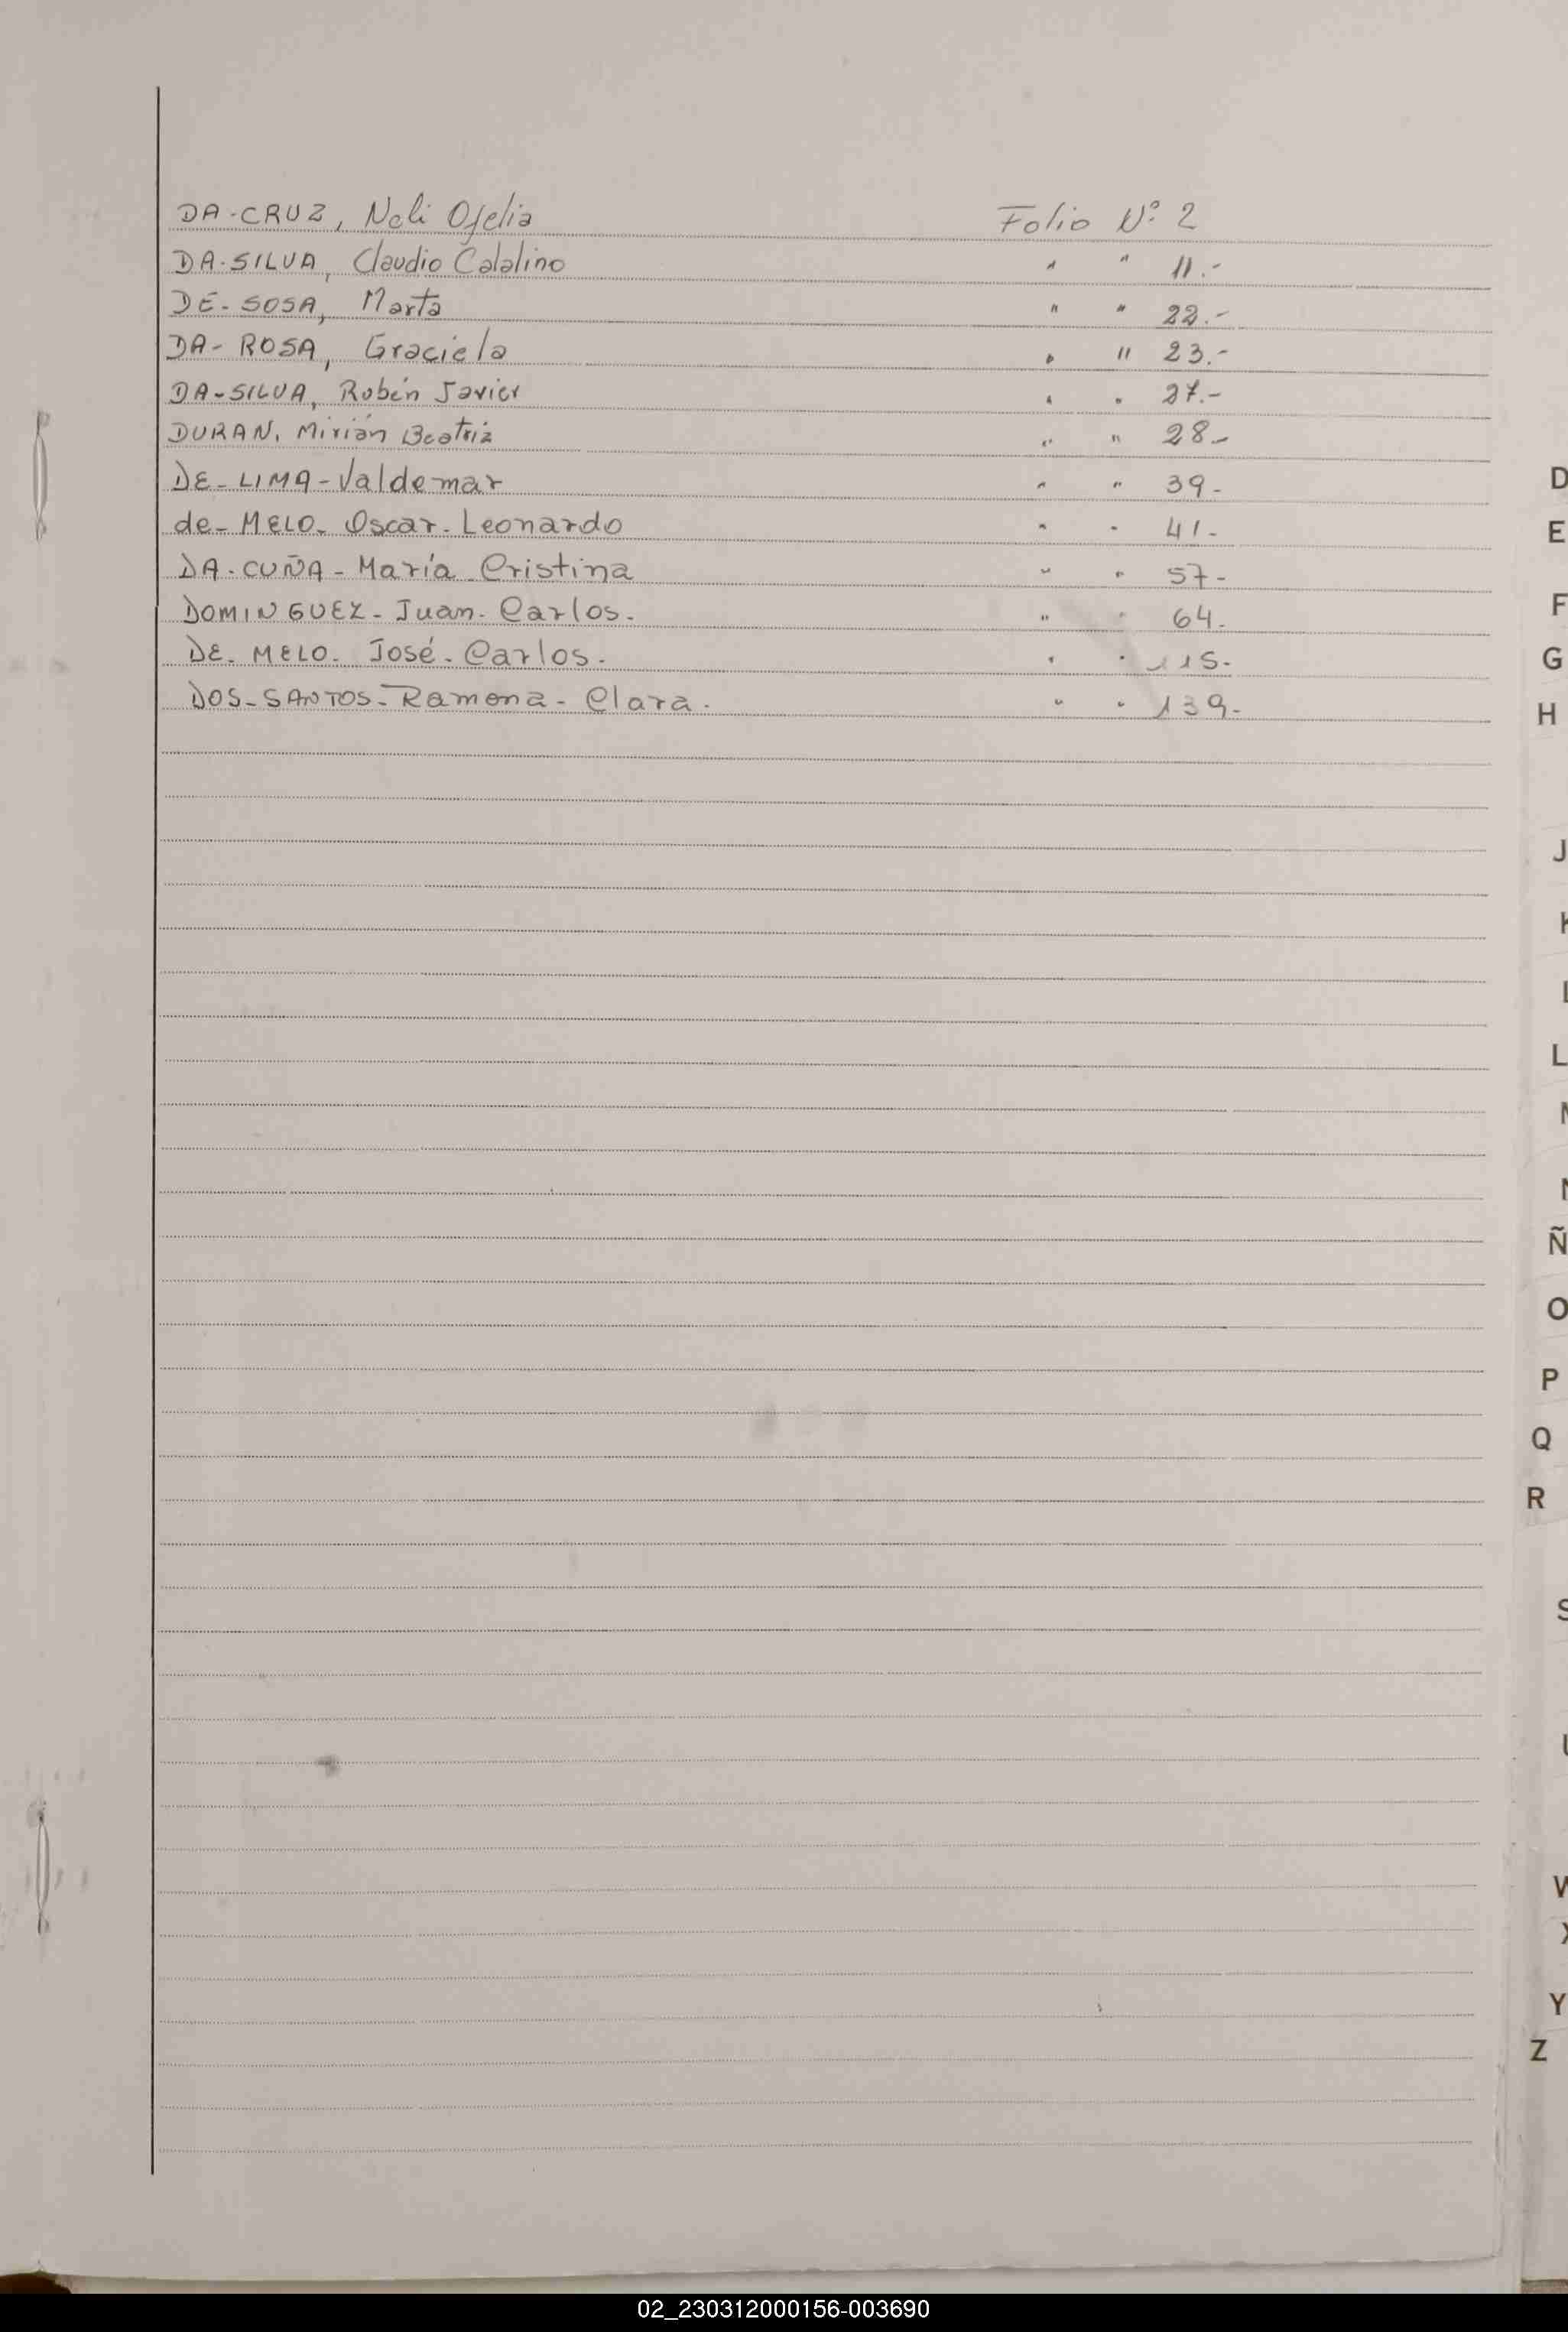 DA-CRUZ, Neli Ofelia Folio Nº 2
DA-SILVA, Claudio Catalino " " 11.-
DE-SOSA, Marta " " 22.-
DA-ROSA, Graciela " " 23.-
DA-SILVA, Rubén Javier " " 27.-
DURAN, Mirián Beatriz " " 28-
DE-LIMA-Valdemar " " 39-
de-MELO-Oscar-Leonardo " " 41-
DA-CUÑA-María Cristina " " 57-
DOMINGUEZ-Juan-Carlos. " " 64-
DE-MELO-José-Carlos. " " 115-
DOS-SANTOS-Ramona-Clara. " " 139-
D
E
F
G
H
J
K
L
Ñ
O
P
Q
R
S
Y
Z
02_230312000156-003690